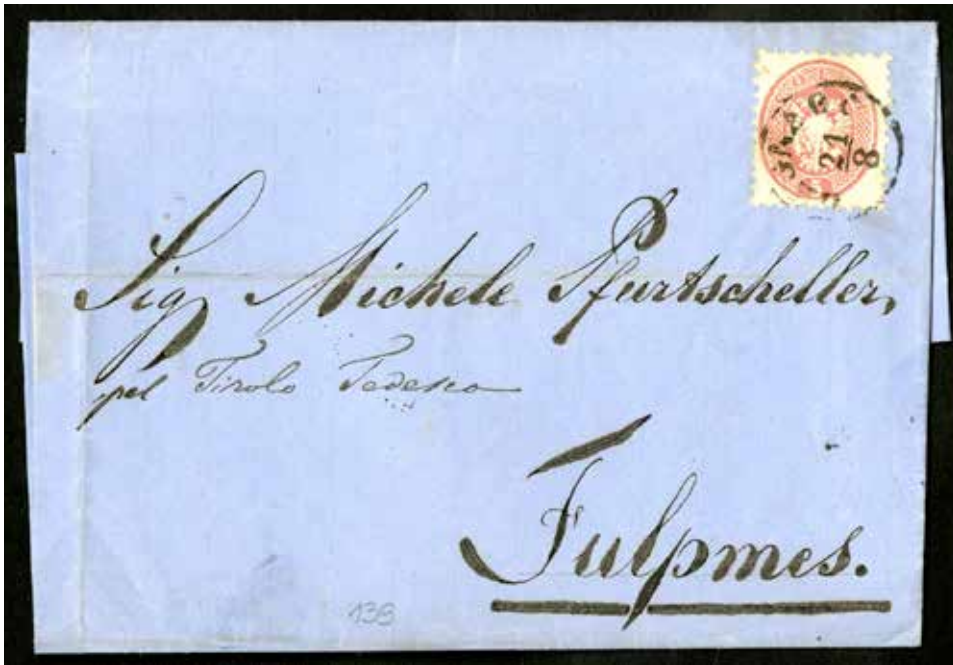 21
8
5
Sigr Michele Pfurtscheller,
pel Tirolo Tedesco
Fulpmes.
138